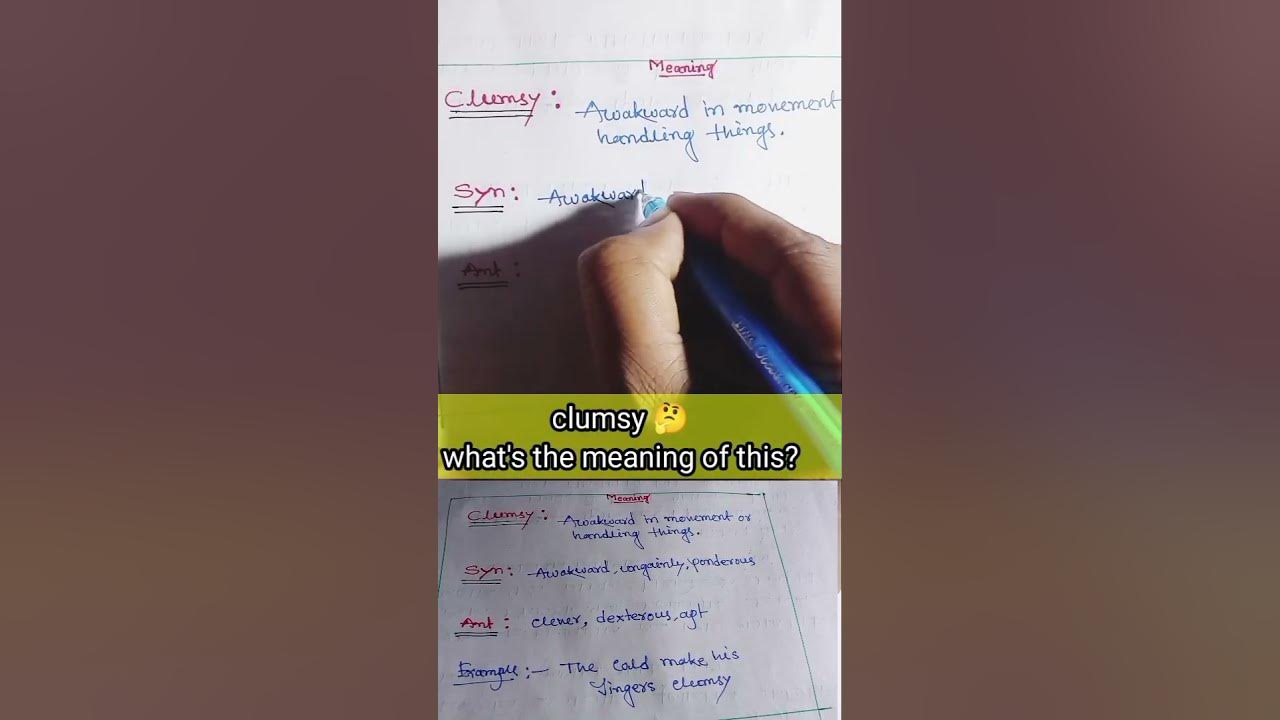 Meaning
Clumsy : Awakward in movement
handling things.
Syn : Awakward
Ant :
clumsy 🤔
what's the meaning of this?
Meaning
Clumsy : Awakward in movement or
handling things.
Syn : Awakward, ungainly, ponderous
Ant : clever, dexterous, apt
Example :- The cold make his
fingers clumsy